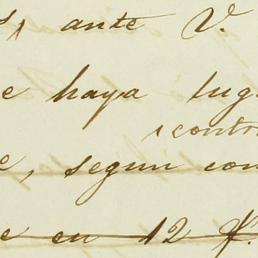 , ante V.
e haya lug
contos
e, segun con
e en 12 f.